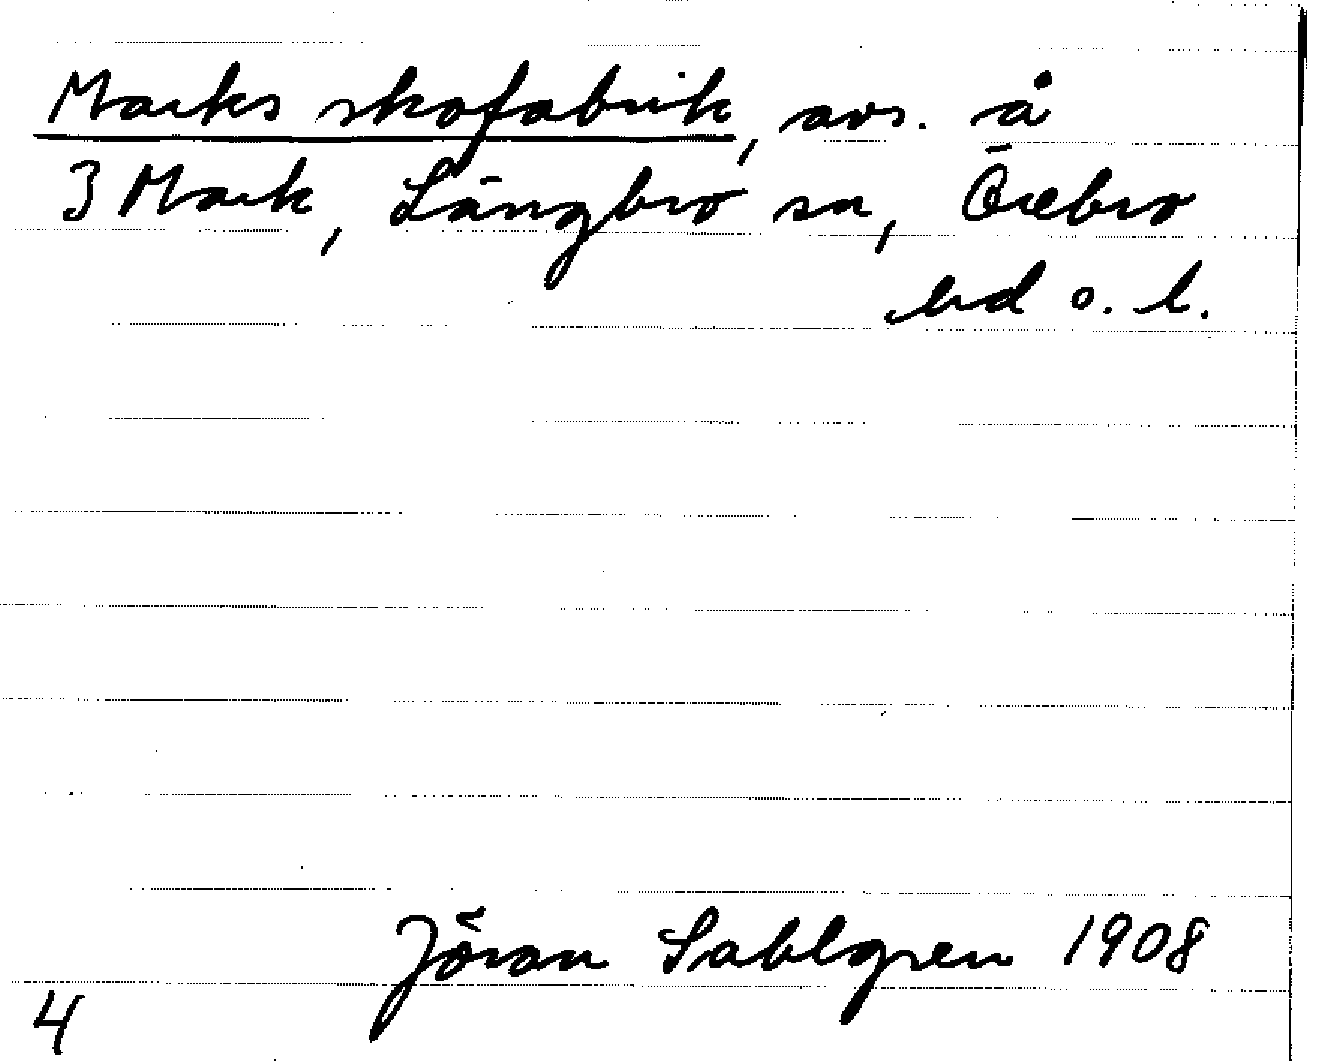 Marks skofabrik, avs. å
3 Mark, Längbro sn, Örebro
hd o. l.
Jöran Sahlgren 1908
4